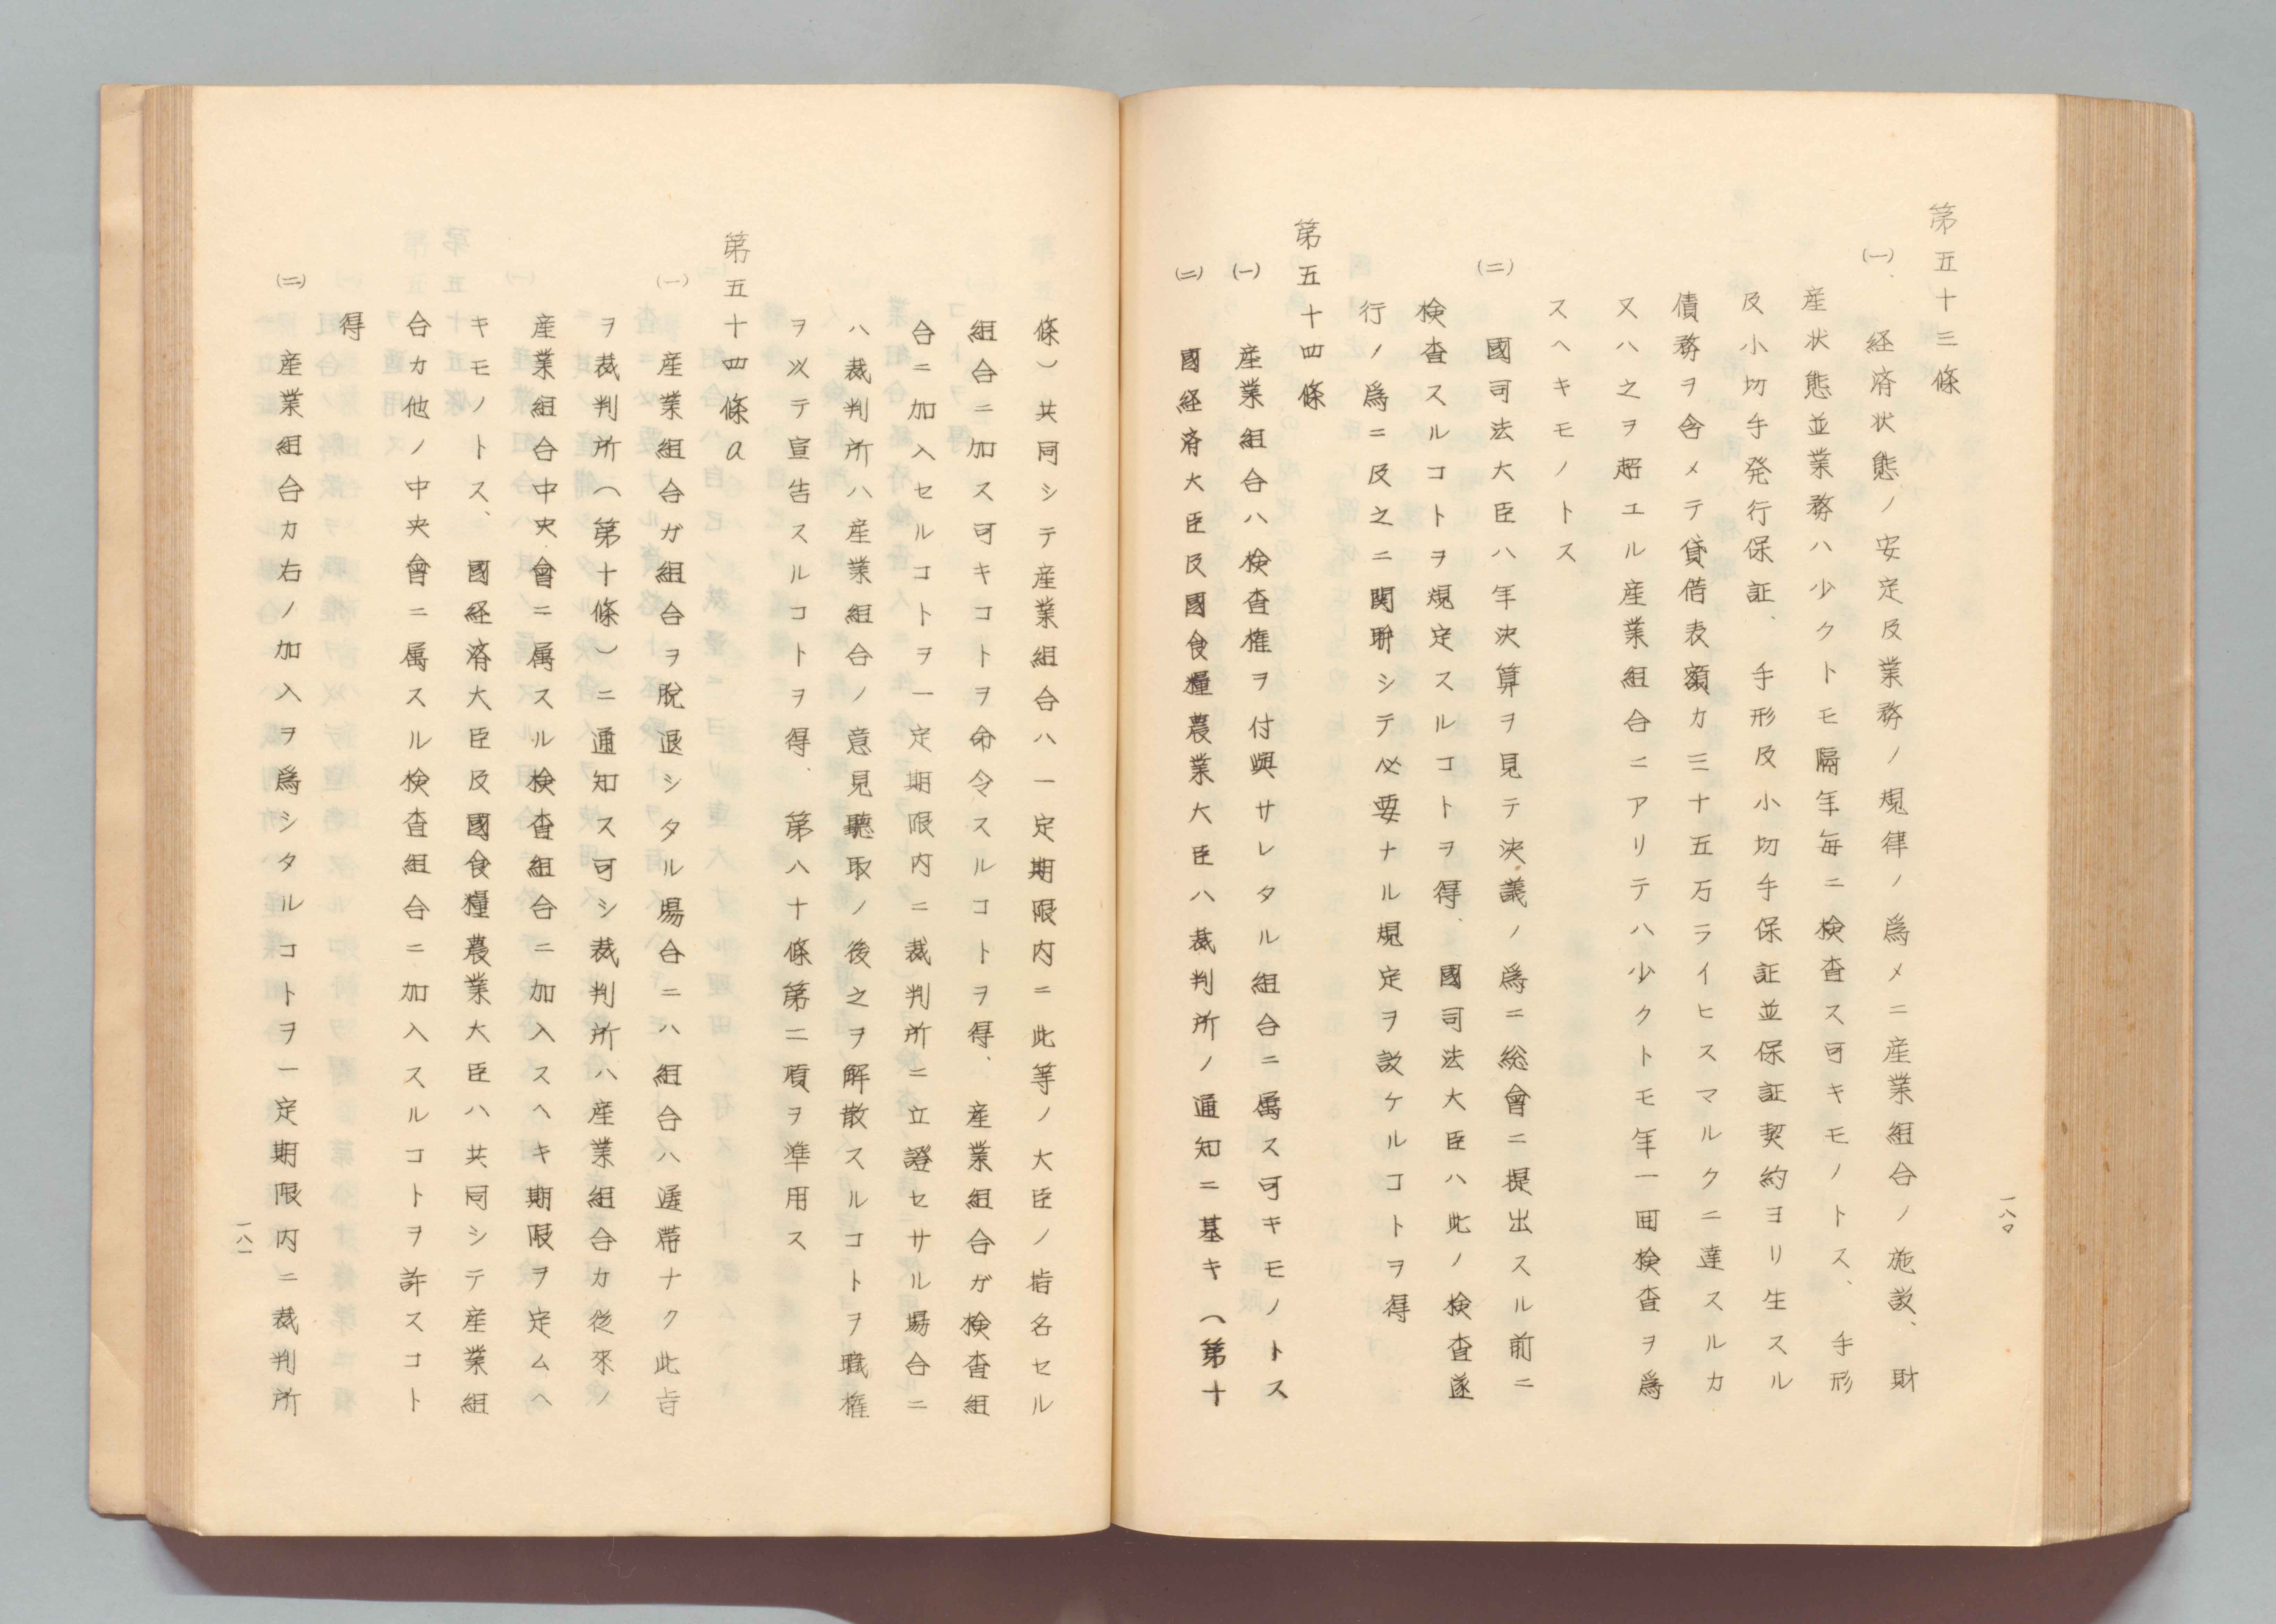 第五十三條
(一)、経済状態ノ安定及業務ノ規律ノ爲メニ産業組合ノ施設、財
産状態並業務ハ少クトモ隔年毎ニ検査ス可キモノトス、手形
及小切手発行保証、手形及小切手保証並保証契約ヨリ生スル
債務ヲ含メテ貸借表額カ三十五万ライヒスマルクニ達スルカ
又ハ之ヲ超エル産業組合ニアリテハ少クトモ年一回検査ヲ爲
スヘキモノトス
(二)國司法大臣ハ年決算ヲ見テ決議ノ爲ニ総會ニ提出スル前ニ
検査スルコトヲ規定スルコトヲ得、國司法大臣ハ此ノ検査遂
行ノ爲ニ及之ニ関聯シテ必要ナル規定ヲ設ケルコトヲ得
第五十四條
(一)産業組合ハ検査権ヲ付與サレタル組合ニ属ス可キモノトス
(二)國経済大臣及國食糧農業大臣ハ裁判所ノ通知ニ基キ(第十
一八〇
條)共同シテ産業組合ハ一定期限内ニ此等ノ大臣ノ指名セル
組合ニ加ス可キコトヲ命令スルコトヲ得、産業組合ガ検査組
合ニ加入セルコトヲ一定期限内ニ裁判所ニ立證セサル場合ニ
ハ裁判所ハ産業組合ノ意見聽取ノ後之ヲ解散スルコトヲ職権
ヲ以テ宣告スルコトヲ得、第八十條第二項ヲ準用ス
第五十四條a
(一)産業組合ガ組合ヲ脱退シタル場合ニハ組合ハ遅滞ナク此旨
ヲ裁判所(第十條)ニ通知ス可シ裁判所ハ産業組合カ従來ノ
産業組合中央會ニ属スル検査組合ニ加入スヘキ期限ヲ定ムヘ
キモノトス、國経済大臣及國食糧農業大臣ハ共同シテ産業組
合カ他ノ中央會ニ属スル検査組合ニ加入スルコトヲ許スコト
得
(二)産業組合カ右ノ加入ヲ爲シタルコトヲ一定期限内ニ裁判所
一八一